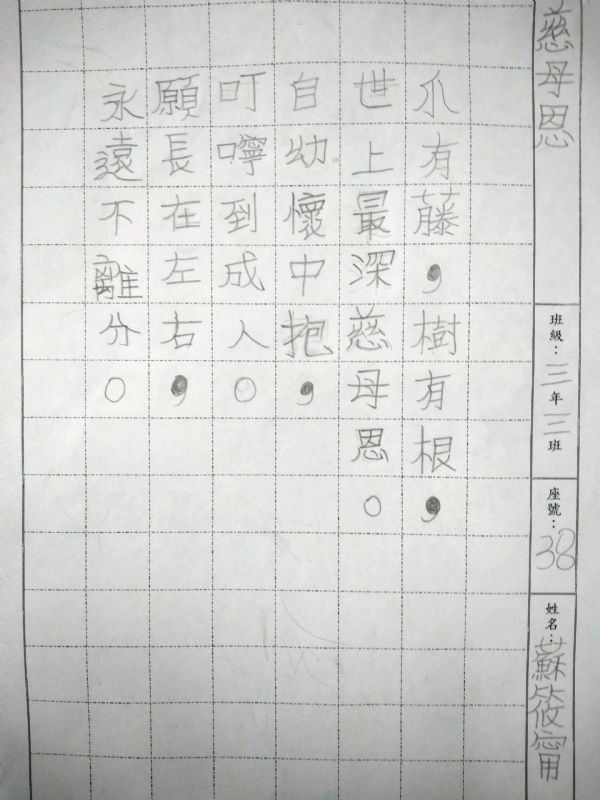 慈母恩
班級：三年三班
座號：38
姓名：蘇筱甯
爪有藤，樹有根，
世上最深慈母恩。
自幼懷中抱，
叮嚀到成人。
願長在左右，
永遠不離分。